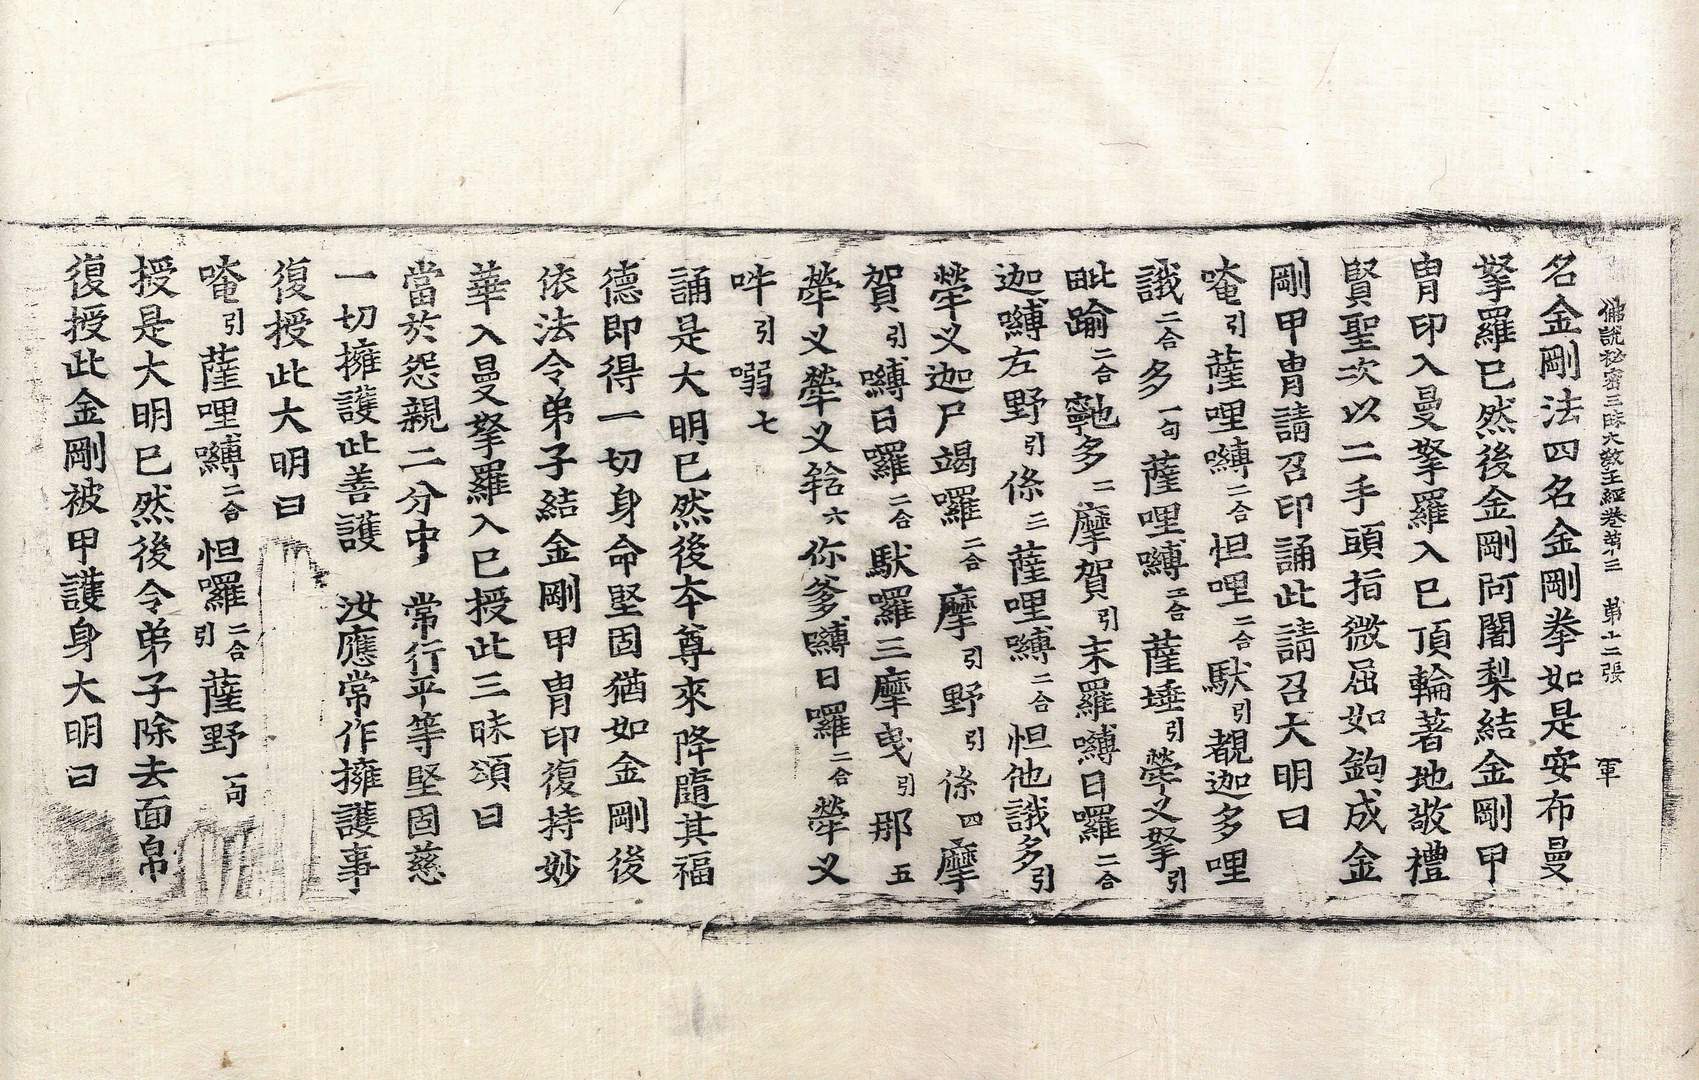 佛說秘密三昧大教王經卷第三 第十二張 軍
名金剛法四名金剛拳如是安布曼
拏羅已然後金剛阿闍梨結金剛甲
冑印入曼拏羅入已頂輪著地敬禮
賢聖次以二手頭指微屈如鉤成金
剛甲冑請召印誦此請召大明曰
唵引薩哩嚩二合怛哩二合馱引覩迦多哩
誐二合多一句薩哩嚩二合薩埵引犖叉拏引
毗踰二合多二摩賀引末羅嚩日囉二合
迦嚩左野引倏三薩哩嚩二合怛他誐多引
犖叉迦尸竭囉二合摩引野引倏四摩
賀引嚩日囉二合馱羅三摩曵引那五
犖叉犖叉輅六你爹嚩日囉二合犖叉
吽引嗠七
誦是大明已然後本尊來降隨其福
德即得一切身命堅固猶如金剛後
依法令弟子結金剛甲冑印復持妙
華入曼拏羅入已授此三昧頌曰
當於怨親二分中 常行平等堅固慈
一切擁護此善護 汝應常作擁護事
復授此大明曰
唵引薩哩嚩二合怛囉二合引薩野一句
授是大明已然後令弟子除去面帛
復授此金剛被甲護身大明曰